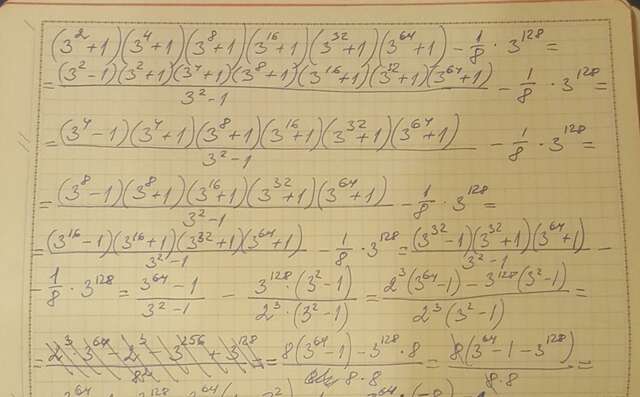 (3²+1)(3⁴+1)(3⁸+1)(3¹⁶+1)(3³²+1)(3⁶⁴+1) - 1/8 · 3¹²⁸ =
= (3²-1)(3²+1)(3⁴+1)(3⁸+1)(3¹⁶+1)(3³²+1)(3⁶⁴+1) / 3²-1 - 1/8 · 3¹²⁸ =
= (3⁴-1)(3⁴+1)(3⁸+1)(3¹⁶+1)(3³²+1)(3⁶⁴+1) / 3²-1 - 1/8 · 3¹²⁸ =
= (3⁸-1)(3⁸+1)(3¹⁶+1)(3³²+1)(3⁶⁴+1) / 3²-1 - 1/8 · 3¹²⁸ =
= (3¹⁶-1)(3¹⁶+1)(3³²+1)(3⁶⁴+1) / 3²-1 - 1/8 · 3¹²⁸ = (3³²-1)(3³²+1)(3⁶⁴+1) / 3²-1 -
- 1/8 · 3¹²⁸ = 3⁶⁴-1 / 3²-1 - 3¹²⁸·(3²-1) / 2³·(3²-1) = 2³(3⁶⁴-1) - 3¹²⁸(3²-1) / 2³(3²-1) =
= 2³·3⁶⁴ - 2³ - 3²⁵⁶ + 3¹²⁸ / 8² = 8(3⁶⁴-1) - 3¹²⁸·8 / 8·8 = 8(3⁶⁴-1-3¹²⁸) / 8·8 =